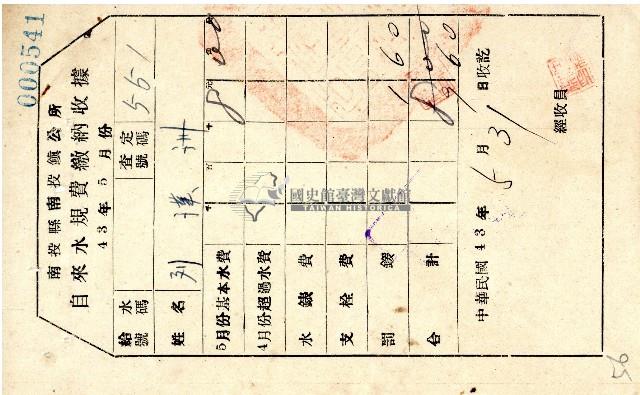 000541
南投縣南投鎮公所
自來水規費繳納收據
43年5月份
給水號碼
查定號碼 551
姓名
5月份基本水費 8 00
4月份超過水費
水錶費
支栓費
罰鍰 1 60
合計 9 60
中華民國43年5月31日收訖
經收員
國史館臺灣文獻館
TAIWAN HISTORICA
56